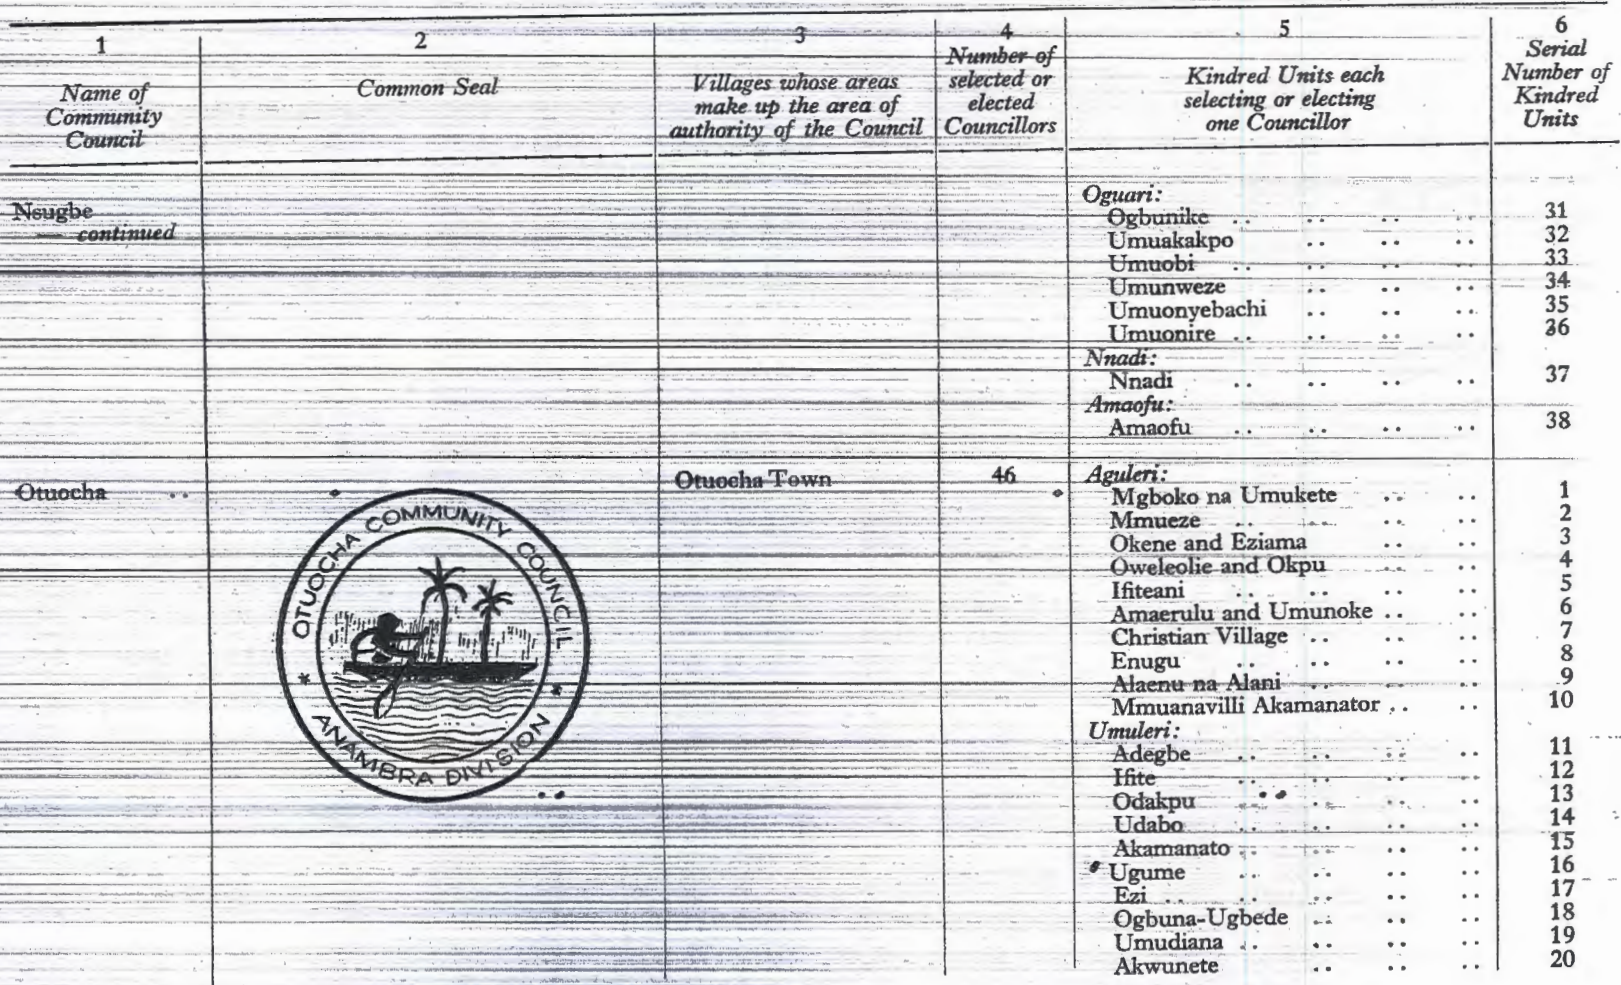 1
Name of
Community
Council
2
Common Seal
3
Villages whose areas
make up the area of
authority of the Council
4
Number of
selected or
elected
Councillors
5
Kindred Units each
selecting or electing
one Councillor
6
Serial
Number of
Kindred
Units
Nsugbe
— continued
Oguari:
Ogbunike .. .. .. .. 31
Umuakakpo .. .. .. 32
Umuobi .. .. .. .. 33
Umunweze .. .. .. 34
Umuonyebachi .. .. .. 35
Umuonire .. .. .. .. 36
Nnadi:
Nnadi .. .. .. .. 37
Amaofu:
Amaofu .. .. .. .. 38
Otuocha ..
OTUOCHA COMMUNITY COUNCIL
* ANAMBRA DIVISION *
Otuocha Town
46
Aguleri:
Mgboko na Umukete .. .. 1
Mmueze .. .. .. .. 2
Okene and Eziama .. .. 3
Oweleolie and Okpu .. .. 4
Ifiteani .. .. .. .. 5
Amaerulu and Umunoke .. .. 6
Christian Village .. .. .. 7
Enugu .. .. .. .. 8
Alaenu na Alani .. .. .. 9
Mmuanavilli Akamanator .. .. 10
Umuleri:
Adegbe .. .. .. .. 11
Ifite .. .. .. .. 12
Odakpu .. .. .. .. 13
Udabo .. .. .. .. 14
Akamanato .. .. .. .. 15
Ugume .. .. .. .. 16
Ezi .. .. .. .. .. 17
Ogbuna-Ugbede .. .. .. 18
Umudiana .. .. .. .. 19
Akwunete .. .. .. 20